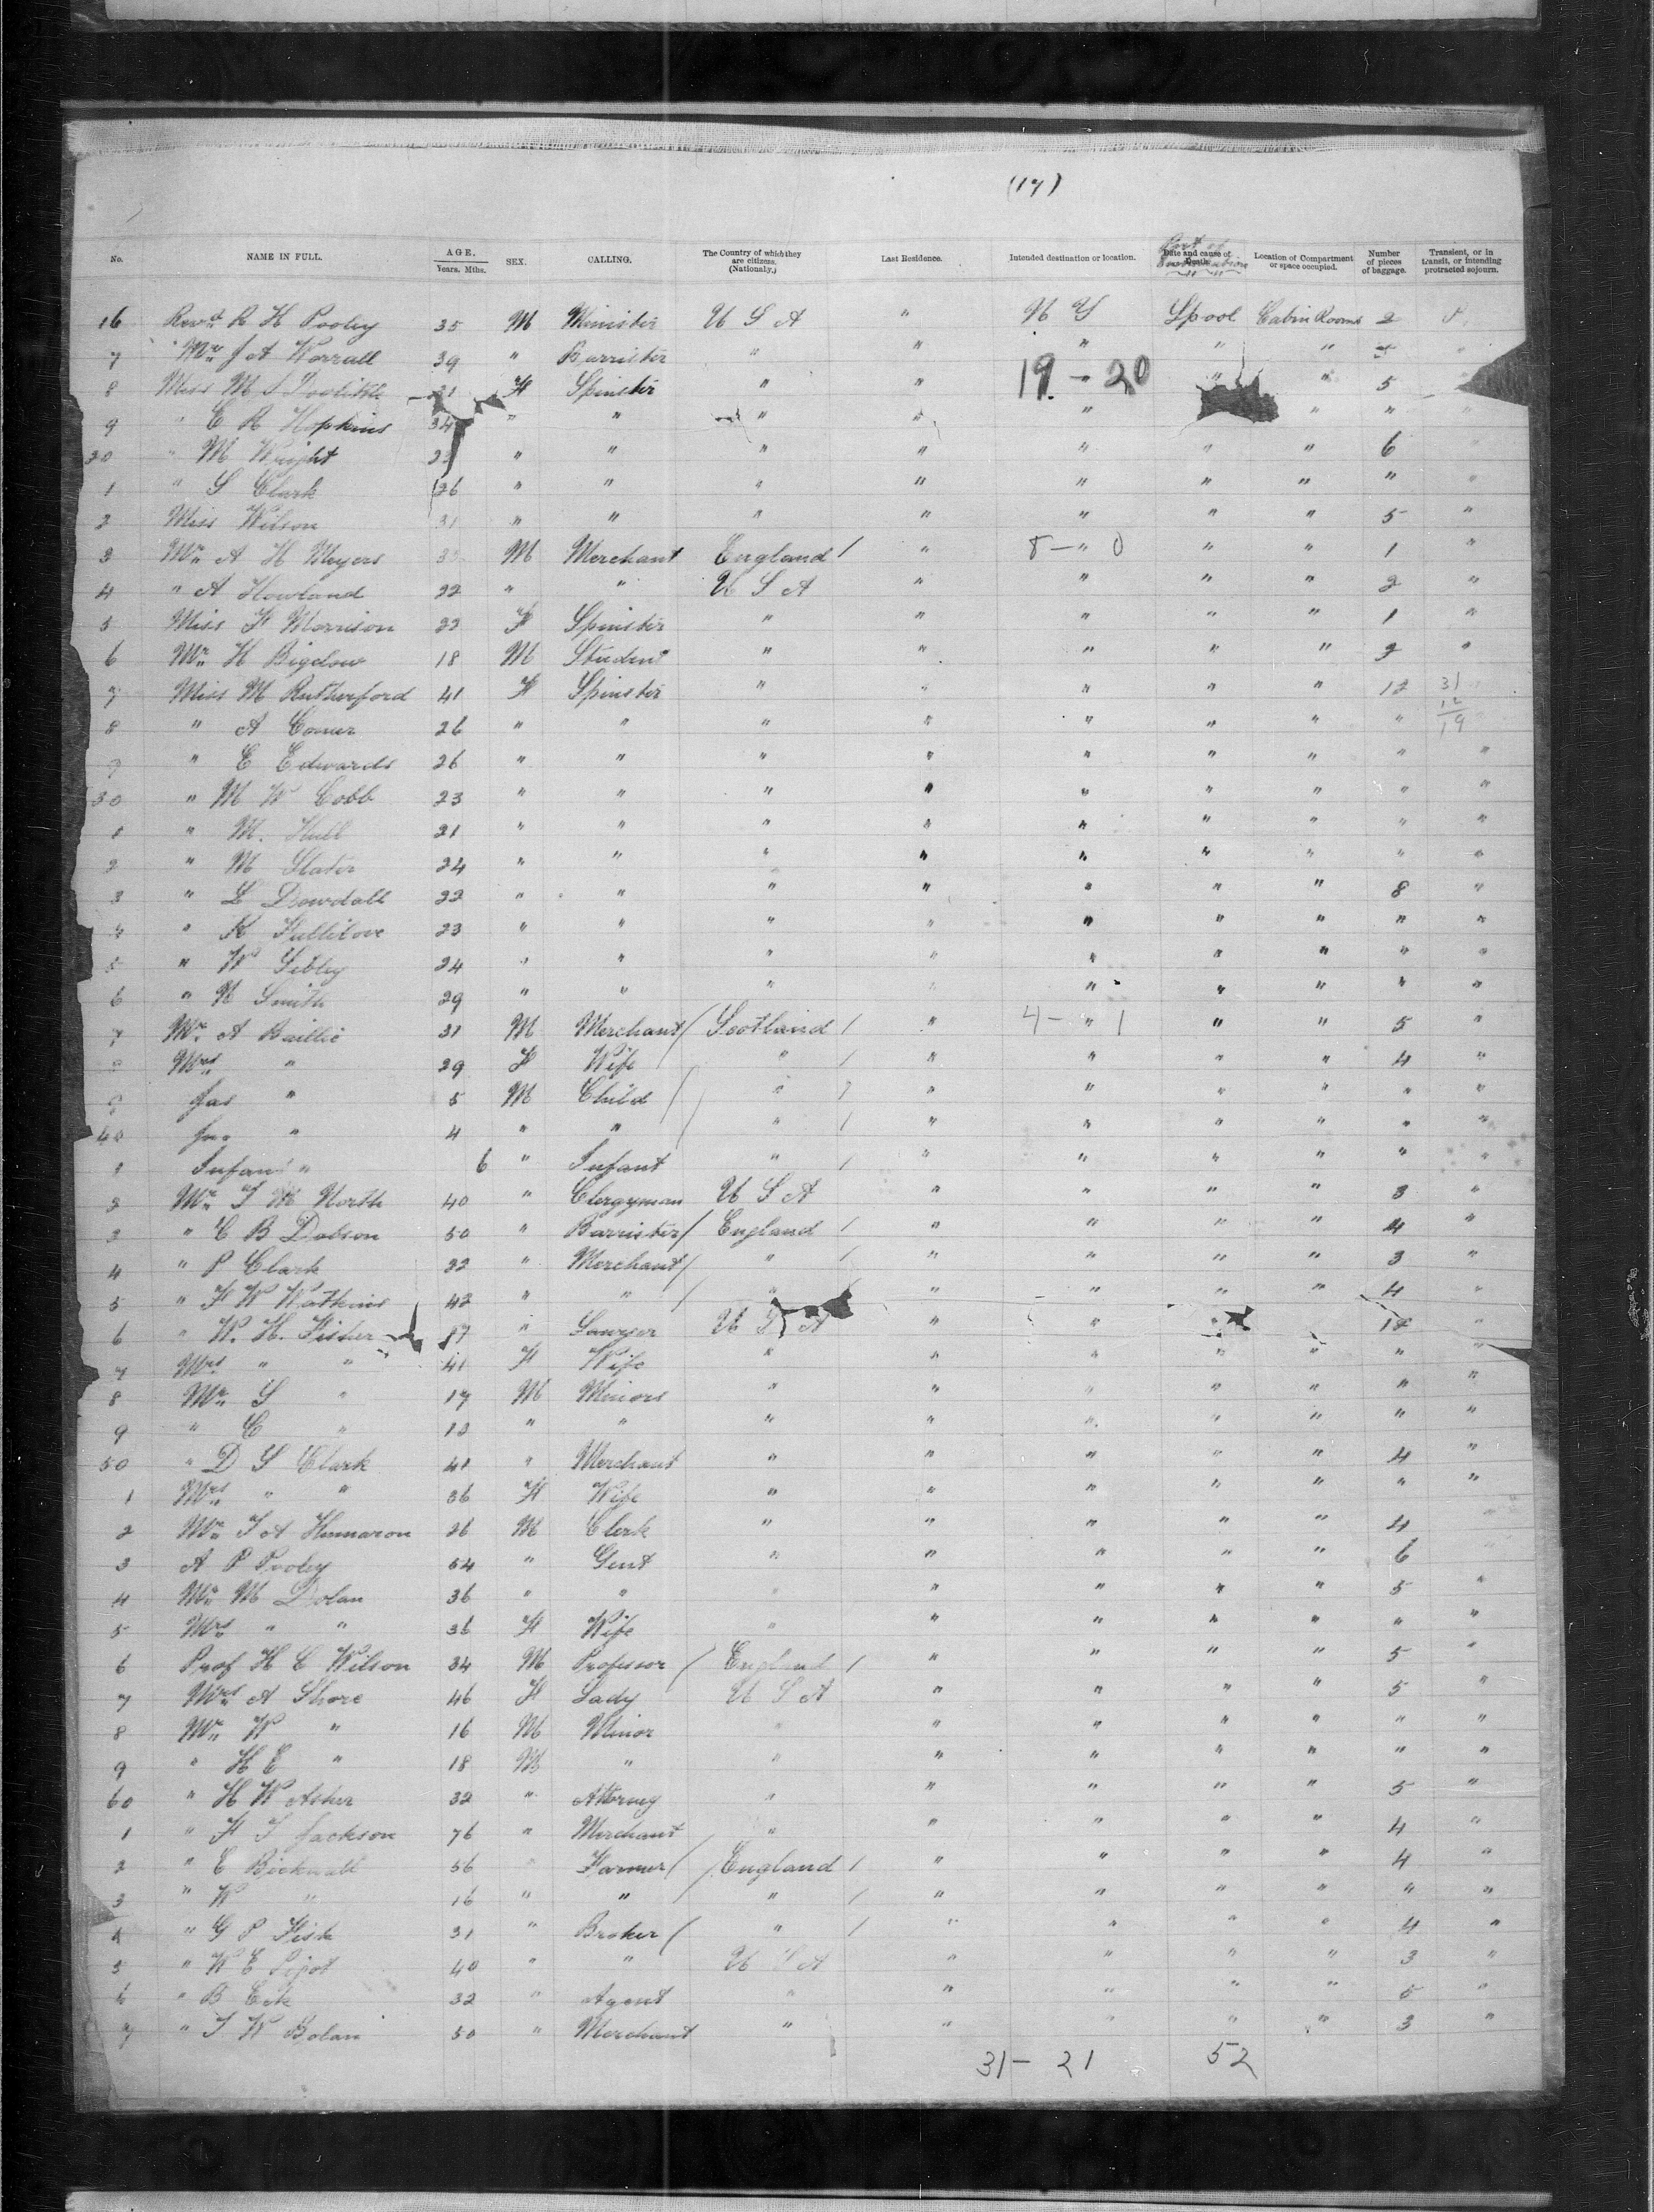 (17)
No. NAME IN FULL. AGE. Years. Mths. SEX. CALLING. The Country of which they are citizens. (Nationaly.) Last Residence. Intended destination or location. Port of Embarkation Date and cause of Death. Location of Compartment or space occupied. Number of pieces of baggage. Transient, or in transit, or intending protracted sojourn.
16 Revd R H Pooley 35 M Minister U S A " N Y Lpool Cabin Rooms 2
7 Mr J A Worrall 39 " Barrister " " " " "
8 Miss M S Doolittle 21 F Spinster " " 19 - 20 " " 5
9 " E R Hopkins 34 " " " " " " "
20 " M Wright 23 " " " " " " " 6 "
1 " S Clark 26 " " " " " " " " "
2 Miss Wilson 31 " " " " " " " 5 "
3 Mr A H Meyers M Merchant England / " 8 - " 0 " " 1 "
4 " A Howland 22 " " U S A " " " " 2 "
5 Miss F Morrison 22 F Spinster " " " " " 1 "
6 Mr H Bigelow 18 M Student " " " " " 2 "
7 Miss M Rutherford 41 F Spinster " " " " " 12 31
8 " A Comer 26 " " " " " " " " 12
19
9 " E Edwards 26 " " " " " " " " "
30 " M W Cobb 23 " " " " " " " " "
1 " M. Hull 21 " " " " " " " " "
2 " M Slater 24 " " " " " " " " "
3 " L Dowdall 22 " " " " " " " 8 "
4 " K Fullilove 23 " " " " " " " " "
5 " W Sibley 24 " " " " " " " " "
6 " N Smith 29 " " " " " " " " "
7 Mr A Baillie 31 M Merchant / Scotland / " 4 - " 1 " " 5 "
8 Mrs " 29 F Wife " / " " " " 4 "
9 Jas " 5 M Child / " / " " " " " "
40 Jno " 4 " " / " / " " " " " "
1 Infant " 6 " Infant " / " " " " " "
2 Mr North 40 " Clergyman U S A " " " " 3 "
3 " C B Dobson 50 " Barrister / England / " " " " 4 "
4 " P Clark 22 " Merchant / " / " " " " 3 "
5 " F W Watkins 42 " " / " " " " " 4 "
6 " W. H. Fisher " Lawyer U S A " " " 12 "
7 Mrs " " 41 F Wife " " " " " " "
8 Mr S " 17 M Minors " " " " " " "
9 " C " 13 " " " " " " " " "
50 " D S Clark 41 " Merchant " " " " " 4 "
1 Mrs " " 36 F Wife " " " " " " "
2 Mr J A Hinnaron 26 M Clerk " " " " " 4 "
3 A P Pooley 54 " Gent " " " " " 6 "
4 Mr M Dolan 36 " " " " " " " 5 "
5 Mrs " " 36 F Wife " " " " " " "
6 Prof H C Wilson 34 M Professor / England / " " " " 5 "
7 Mrs A Shore 46 F Lady U S A " " " " 5 "
8 Mr W " 16 M Minor " " " " " " "
9 " H E " 18 M " " " " " " " "
60 " H W Asher 32 " Attorney " " " " " 5 "
1 " F J Jackson 76 " Merchant " " " " " 4 "
2 " E Bicknall 56 " Farmer / / England / " " " " 4 "
3 " W " 16 " " " / " " " " " "
4 " G P Fisk 31 " Broker / " / " " " " 4 "
5 " W E 40 " " U S A " " " " 3 "
6 " B Eck 32 " Agent " " " " " 5 "
7 " J W Bolan 50 " Merchant " " " " " 3 "
31 - 21 52